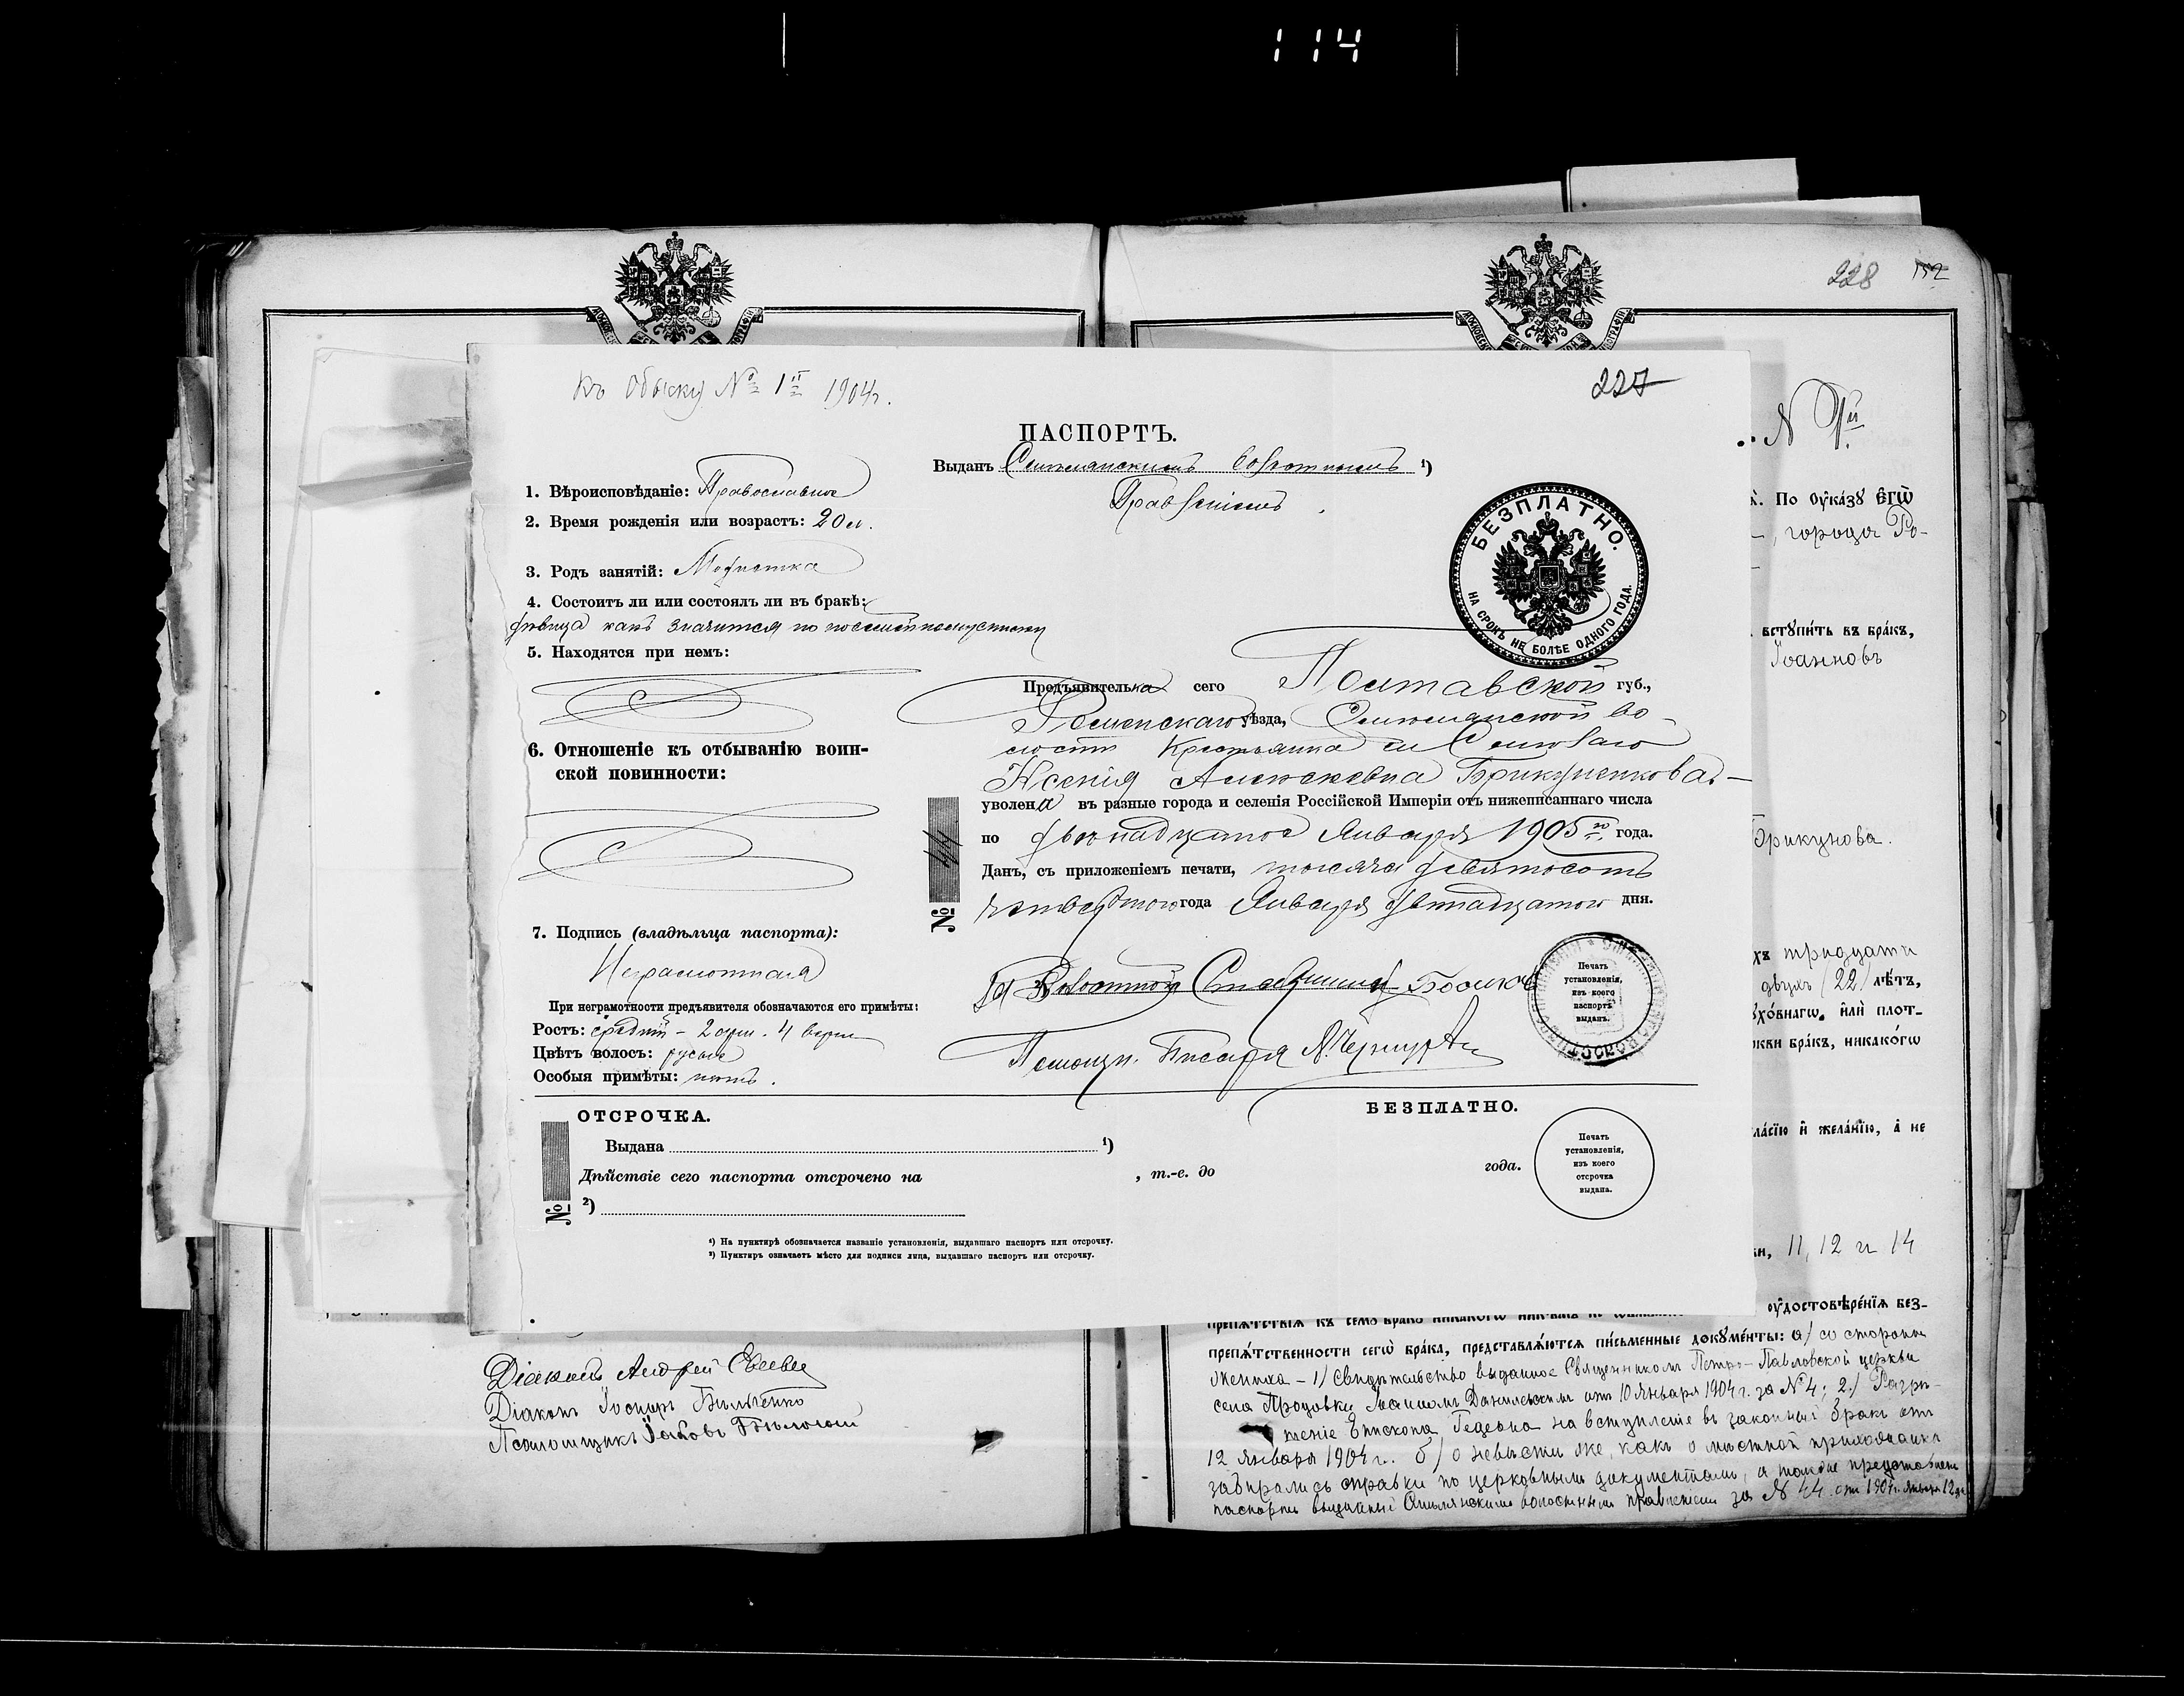 114
228 152
Къ обыску № 1й 1904г.
227
ПАСПОРТЪ.
Выданъ Смѣлянскимъ Волостнымъ ¹)
Правленіемъ
1. Вѣроисповѣданіе: Православное
2. Время рожденія или возрастъ: 20 л.
3. Родъ занятій: Модистка
4. Состоитъ ли или состоялъ ли въ бракѣ:
дѣвица какъ значится по посемейному списку
5. Находятся при немъ:
6. Отношеніе къ отбыванію воин-
ской повинности:
7. Подпись (владѣльца паспорта):
Неграмотная
При неграмотности предъявителя обозначаются его примѣты:
Ростъ: средній - 2 арш. 4 верш
Цвѣтъ волосъ: русые
Особыя примѣты: нѣтъ.
БЕЗПЛАТНО.
НА СРОКЪ НЕ БОЛѢЕ ОДНОГО ГОДА.
Предъявительница сего Полтавской губ.,
Роменскаго уѣзда, Смѣлянской во-
лости Крестьянка
Ксенія Алексѣевна Брикуненкова -
уволена въ разные города и селенія Россійской Имперіи отъ нижеписаннаго числа
по двѣнадцатое Января 1905го года.
Данъ, съ приложеніемъ печати, тысяча девятьсотъ
четвертого года Января двѣнадцатого дня.
№ 44
Волостной Старшина
Печать
установленія,
изъ коего
паспортъ
выданъ.
Помощн. Писаря
ОТСРОЧКА.
БЕЗПЛАТНО.
Выдана ¹)
Дѣйствіе сего паспорта отсрочено на , т.-е. до года.
№ ²)
Печать
установленія,
изъ коего
отсрочка
выдана.
¹) На пунктирѣ обозначается названіе установленія, выдавшаго паспортъ или отсрочку.
²) Пунктиръ означаетъ мѣсто для подписи лица, выдавшаго паспортъ или отсрочку.
Діаконъ Андрей Евсевскій
Діаконъ Іосифъ Бильченко
Псаломщикъ Іаковъ
По ᲂука́зу є҆гѡ̀
, города Ро-
вступи́ть въ бра́къ,
Іоанновъ
Брикунова.
тридцати
двухъ (22) лѣтъ,
дꙋхо́внагѡ, и҆лѝ пло́т-
бра́къ, никако́гѡ
и҆ жела́нїю, а҆ не
11, 12 и 14
ᲂу҆достовѣре́нїѧ без-
препѧ́тственности сегѡ̀ бра́ка, представлѧ́ютсѧ пи́сьменные докꙋме́нты: а) со стороны
жениха - 1) Свидѣтельство выданное Священникомъ Петро-Павловской церкви
села Процовки Даниловскимъ отъ 10 Января 1904 г. за № 4; 2) Разрѣ-
шеніе Епископа Гедеона на вступленіе въ законный бракъ отъ
12 Января 1904 г. б) о невѣсти же, какъ о мѣстной прихожанкѣ
забирались справки по церковнымъ документамъ, а также представленъ
паспортъ выданный Смѣлянскимъ волостнымъ правленіемъ за № 44 отъ 1904 г. Января 12 дня